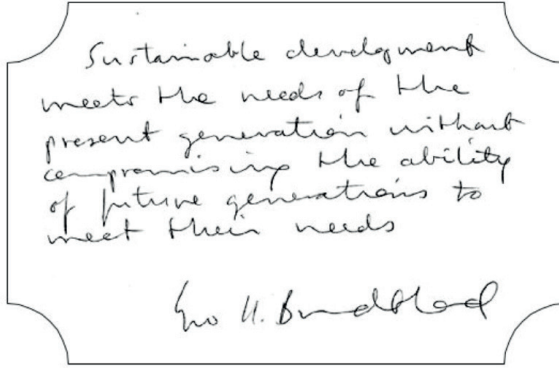 Sustainable development
meets the needs of the
present generation without
compromising the ability
of future generations to
meet their needs
Gro H. Brundtland